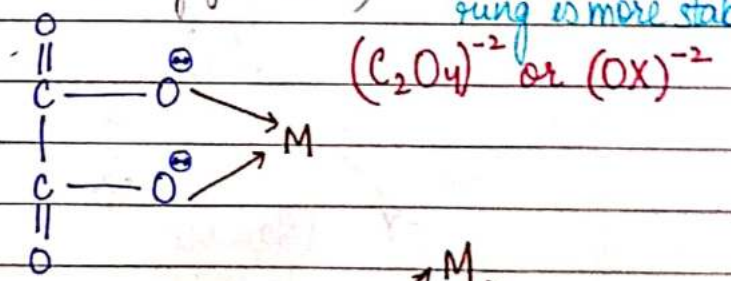 ring is more stab
(C₂O₄)⁻² or (OX)⁻²
O
||
C — O⊖
|
M
C — O⊖
||
O
M